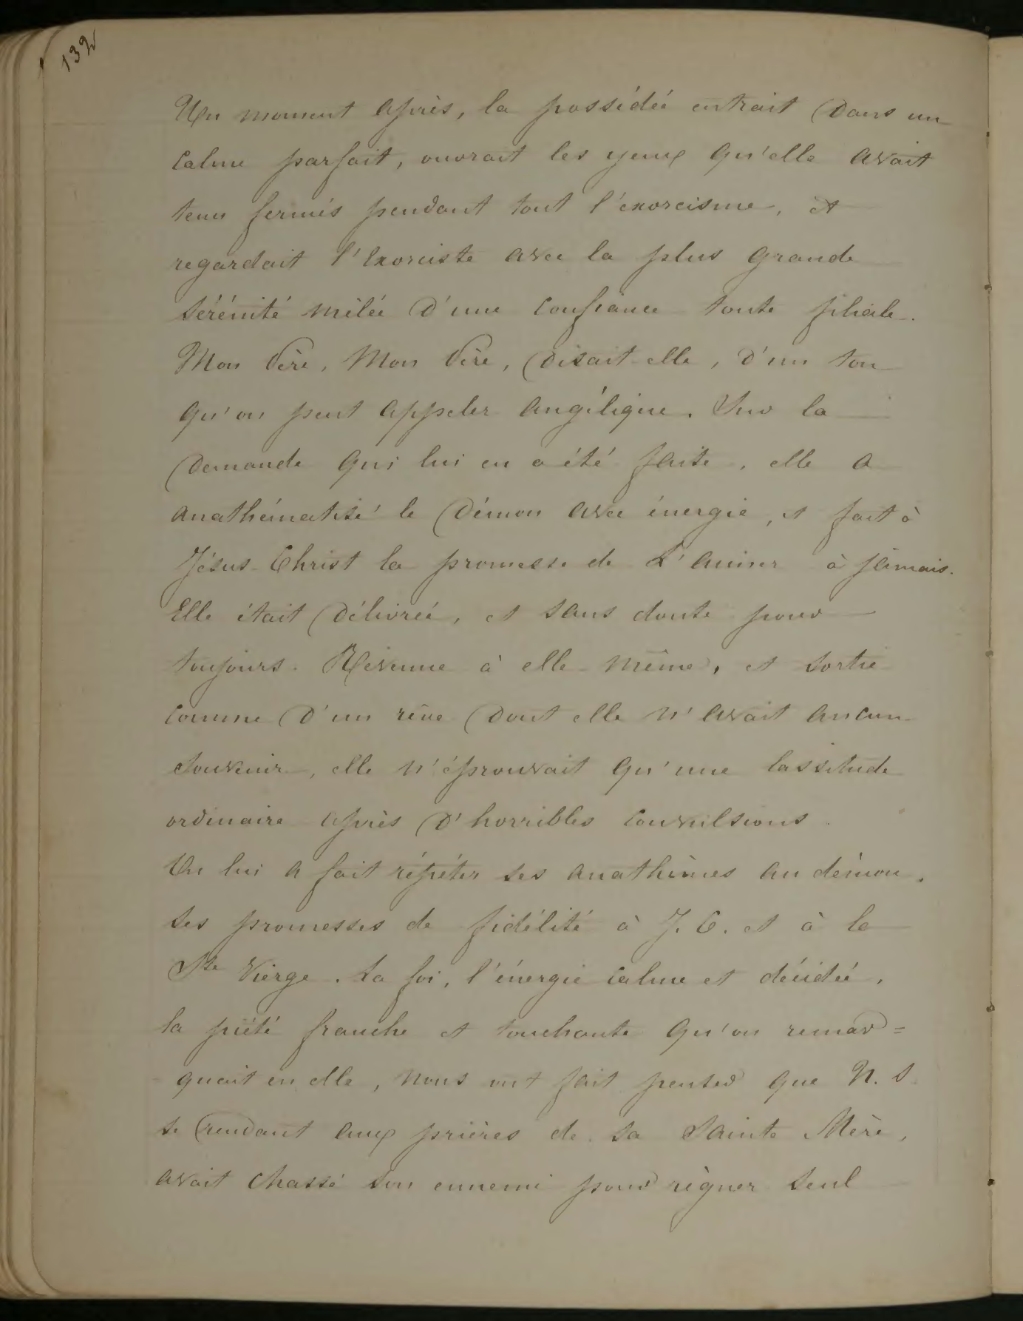 132
Un moment après, la possédée entrait dans un
calme parfait, ouvrait les yeux qu'elle avait
tenu fermés pendant tout l'exorcisme, et
regardait l'exorciste avec la plus grande
sérénité mêlée d'une confiance toute filiale.
Mon Père, Mon Père, disait-elle, d'un ton
qu'on peut appeler angélique. Sur la
demande qui lui en a été faite, elle a
anathématisé le démon avec énergie, et fait à
Jésus-Christ la promesse de L'aimer à jamais.
Elle était délivrée, et sans doute pour
toujours. Revenue à elle-même, et sortie
comme d'un rêve dont elle n'avait aucun
souvenir, elle n'éprouvait qu'une lassitude
ordinaire après d'horribles convulsions.
On lui a fait répéter ses anathèmes au démon,
ses promesses de fidélité à J. C. et à la
Ste Vierge. La foi, l'énergie calme et décidée,
la piété franche et touchante qu'on remar=
quait en elle, nous ont fait penser que N. S.
se rendant aux prières de sa Sainte Mère,
avait chassé son ennemi pour règner seul